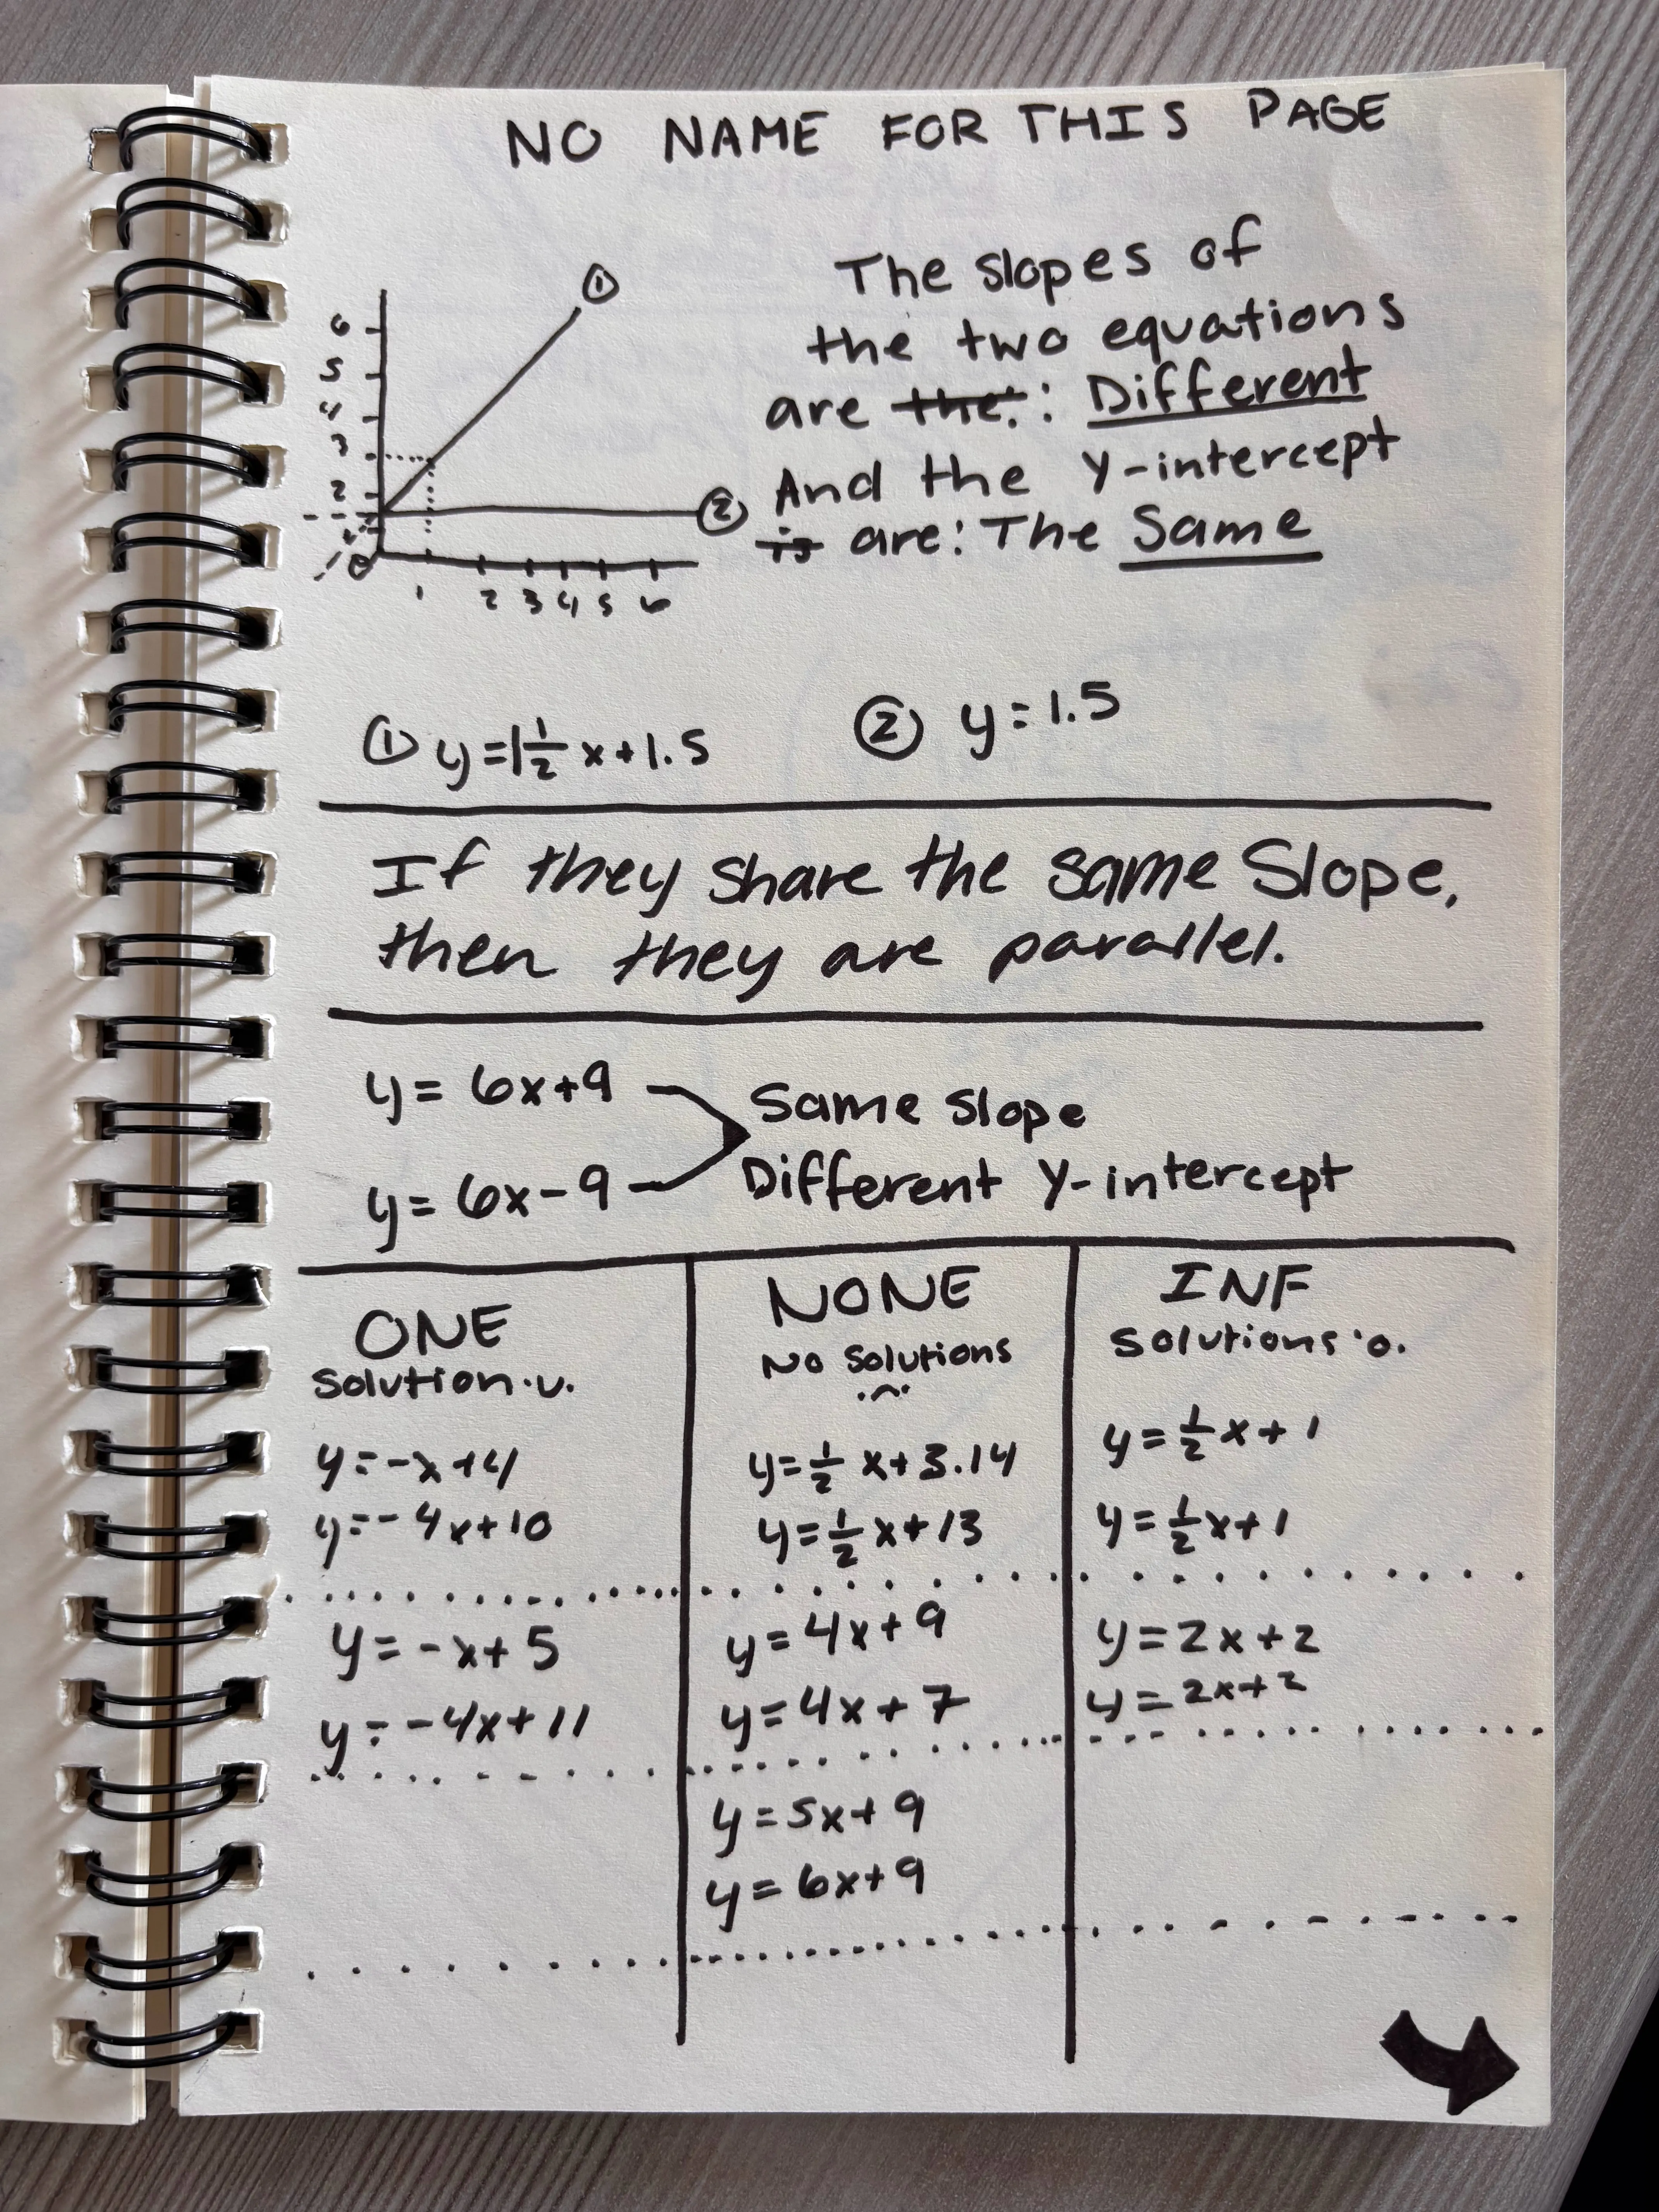 NO NAME FOR THIS PAGE
The slopes of
the two equations
are the: : Different
And the Y-intercept
is are: The Same
①
6
5
4
3
2
②
0
1 2 3 4 5 6
① y=1½x+1.5
② y=1.5
If they share the same Slope,
then they are parallel.
y= 6x+9
y= 6x-9
Same slope
Different Y-intercept
ONE
Solution .u.
y=-x+4
y=-4x+10
y=-x+5
y=-4x+11
NONE
No Solutions
y=½x+3.14
y=½x+13
y=4x+9
y=4x+7
y=5x+9
y=6x+9
INF
Solutions 'o.
y=½x+1
y=½x+1
y=2x+2
y=2x+2